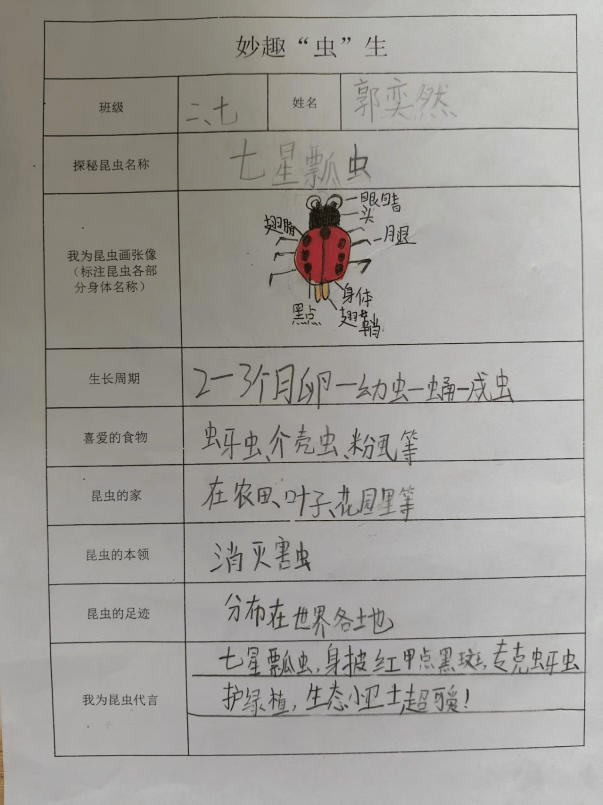 妙趣“虫”生
班级 二、七 姓名 郭奕然
探秘昆虫名称 七星瓢虫
我为昆虫画张像
（标注昆虫各部
分身体名称）
眼睛
头
翅膀
腿
身体
黑点
翅鞘
生长周期 2一3个月卵一幼虫一蛹一成虫
喜爱的食物 虫牙虫、介壳虫、粉虱等
昆虫的家 在农田、叶子、花园里等
昆虫的本领 消灭害虫
昆虫的足迹 分布在世界各土地
我为昆虫代言
七星瓢虫，身披红甲点黑斑，专克虫牙虫
护绿植，生态小卫士超可爱！